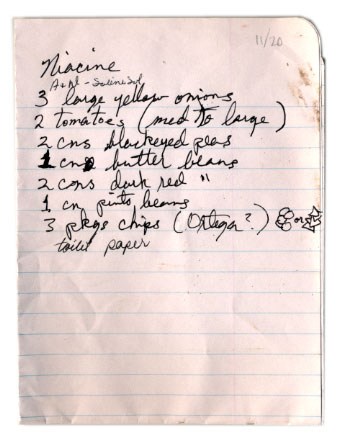 11/20
Niacine
Saline Sol
3 large yellow onions
2 tomatoes (med to large)
2 cns blackeyed peas
1 cn butter beans
2 cns dark red "
1 cn pinto beans
3 pkgs chips (Ortega?) or
toilet paper